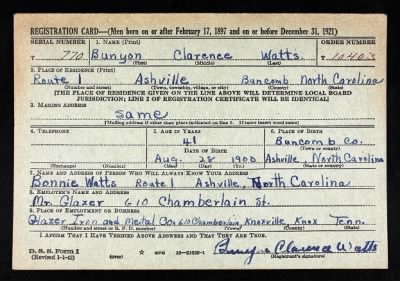 REGISTRATION CARD—(Men born on or after February 17, 1897 and on or before December 31, 1921)
SERIAL NUMBER 1. NAME (Print) ORDER NUMBER
T 770 Bunyon Clarence Watts. 10403
(First) (Middle) (Last)
2. PLACE OF RESIDENCE (Print)
Route 1 Ashville Buncomb North Carolina
(Number and street) (Town, township, village, or city) (County) (State)
[THE PLACE OF RESIDENCE GIVEN ON THE LINE ABOVE WILL DETERMINE LOCAL BOARD
JURISDICTION; LINE 2 OF REGISTRATION CERTIFICATE WILL BE IDENTICAL]
3. MAILING ADDRESS
same
[Mailing address if other than place indicated on line 2. If same insert word same]
4. TELEPHONE 5. AGE IN YEARS 6. PLACE OF BIRTH
41 Buncomb Co.
DATE OF BIRTH (Town or county)
Aug. 28 1900 Ashville, North Carolina
(Exchange) (Number) (Mo.) (Day) (Yr.) (State or country)
7. NAME AND ADDRESS OF PERSON WHO WILL ALWAYS KNOW YOUR ADDRESS
Bonnie Watts Route 1 Ashville, North Carolina
8. EMPLOYER'S NAME AND ADDRESS
Mr. Glazer 610 Chamberlain St.
9. PLACE OF EMPLOYMENT OR BUSINESS
Glazer Iron and Mental Co. 610 Chamberlain, Knoxville Knox Tenn.
(Number and street or R. F. D. number) (Town) (County) (State)
I AFFIRM THAT I HAVE VERIFIED ABOVE ANSWERS AND THAT THEY ARE TRUE.
D. S. S. Form 1
(Revised 1-1-42) (over) GPO 16—21630-1 Bunyon Clarence Watts
(Registrant's signature)